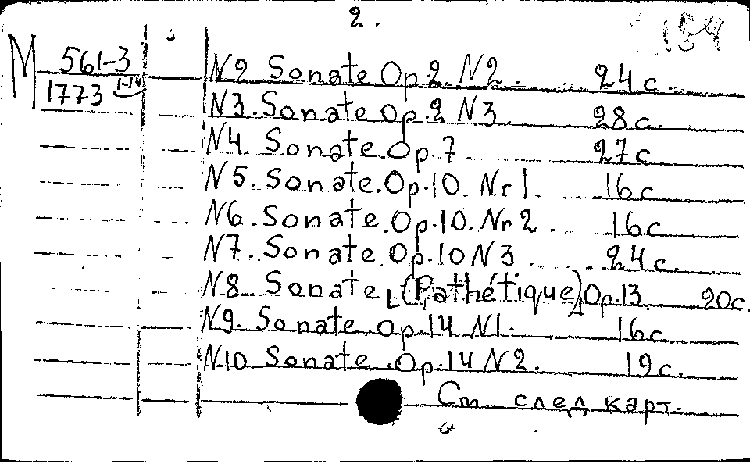 2.
M 561-3
1773 1-14
N2 Sonate Op.2 N2. 24 c.
N3. Sonate Op.2 N3 28 c.
N4. Sonate. Op.7 27 c
N5. Sonate. Op.10. Nr1. 16 c
N6. Sonate. Op.10. Nr2 16 c
N7. Sonate Op.10 N3 24 c.
N8. Sonate [(Pathétique] Op.13 20c.
N9. Sonate Op.14 N1. 16 c
N10 Sonate. Op.14 N2. 19 c.
См след карт.